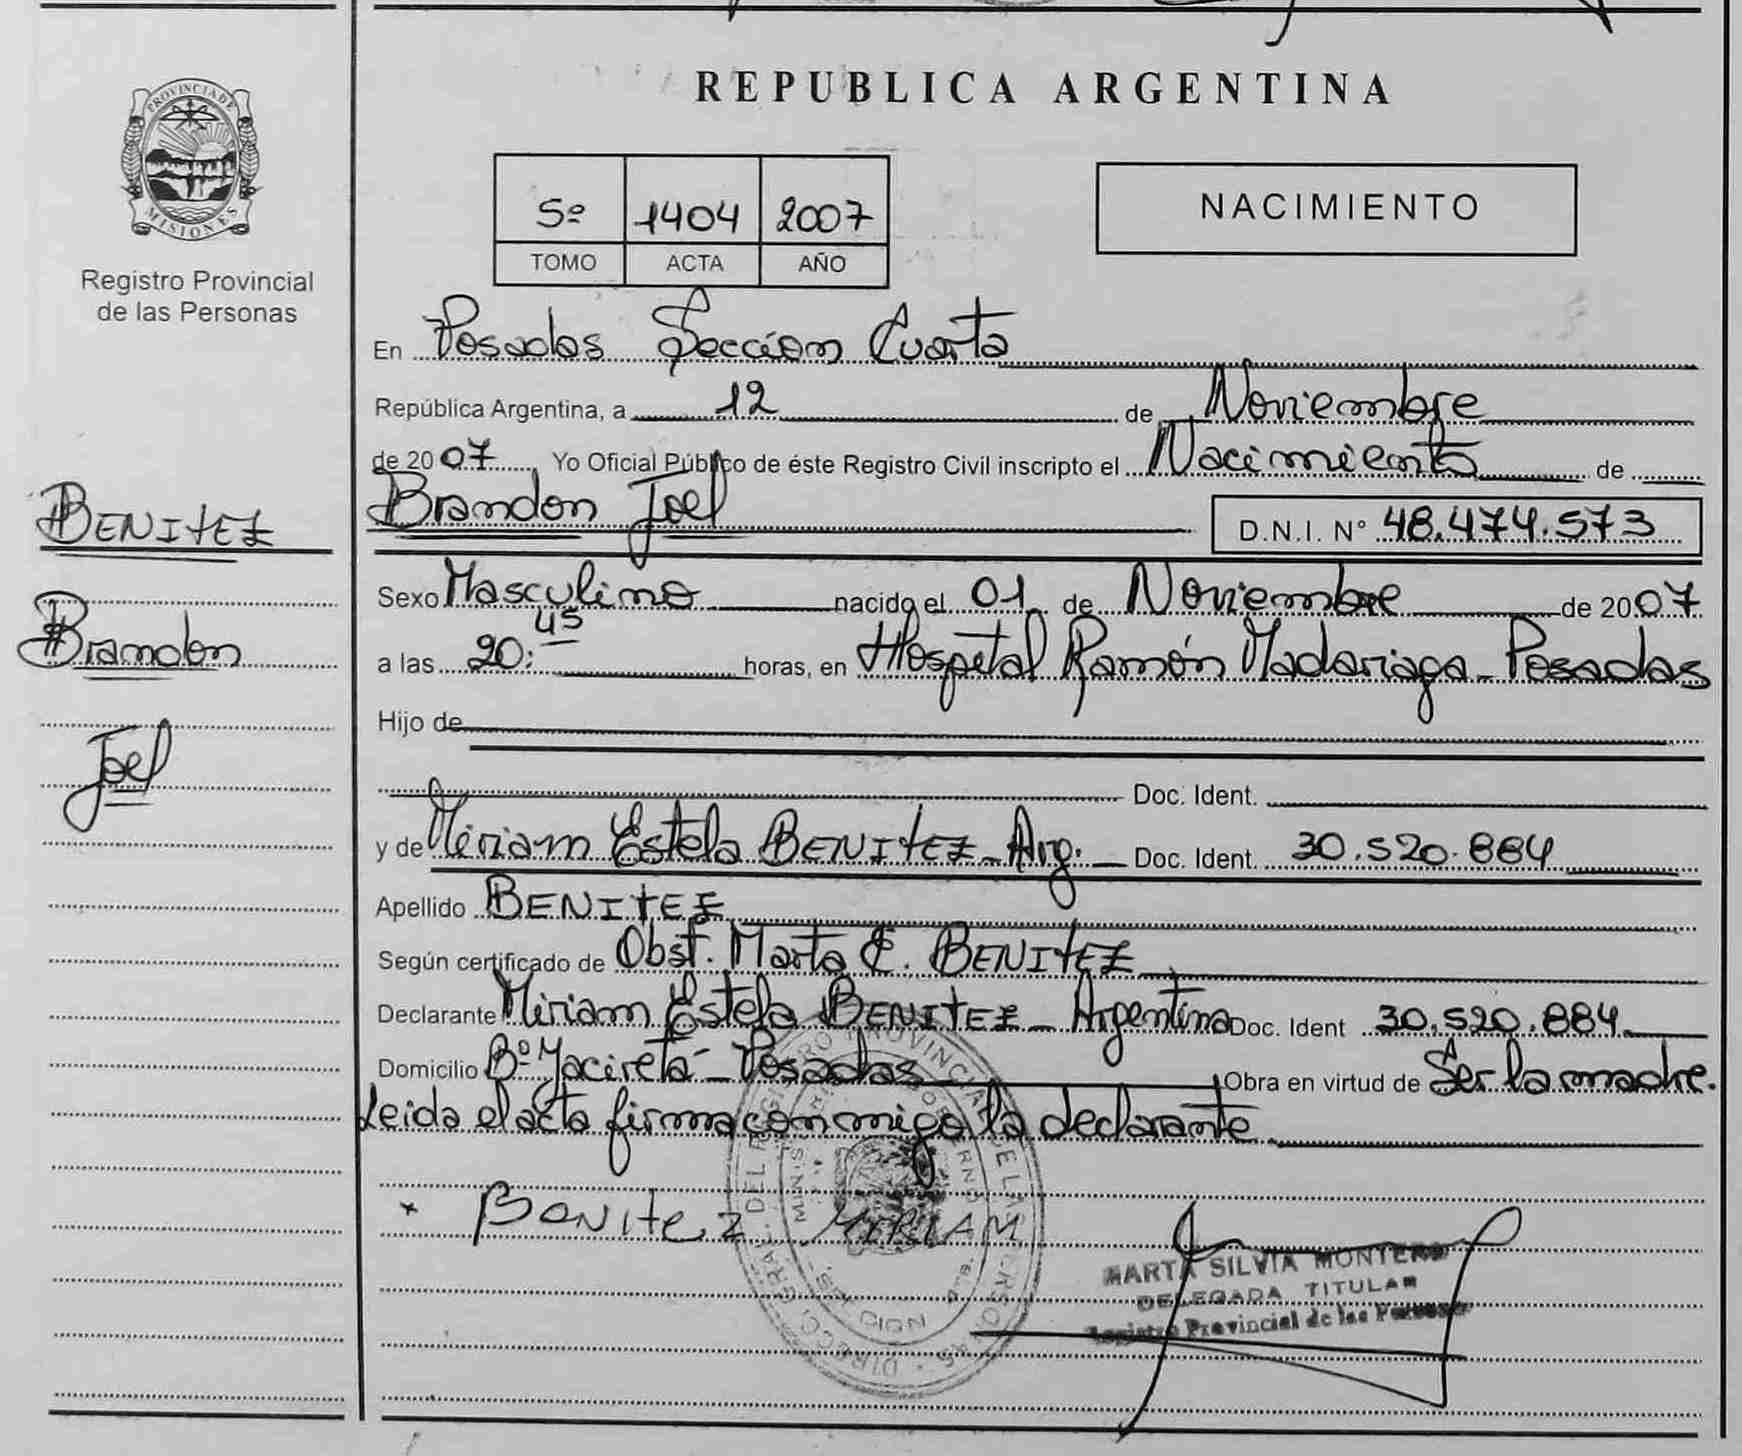 PROVINCIA DE
MISIONES
Registro Provincial
de las Personas
BENITEZ
Brandon
Joel
REPUBLICA ARGENTINA
5º 1404 2007
TOMO ACTA AÑO
NACIMIENTO
En Posadas Seccion Cuarta
República Argentina, a 12 de Noviembre
de 2007 Yo Oficial Público de éste Registro Civil inscripto el Nacimiento de
Brandon Joel D.N.I. Nº 48.474.573
Sexo Masculino nacido el 01 de Noviembre de 2007
a las 20:45 horas, en Hospital Ramón Madariaga - Posadas
Hijo de
Doc. Ident.
y de Miriam Estela BENITEZ - Arg. Doc. Ident. 30.520.884
Apellido BENITEZ
Según certificado de Obst. Marta E. BENITEZ
Declarante Miriam Estela BENITEZ - Argentina Doc. Ident 30.520.884
Domicilio Bº Yacireta - Posadas Obra en virtud de Ser la madre.
Leida el acta firma conmigo la declarante
x BENITEZ MIRIAM
MARTA SILVIA MONTERO
DELEGADA TITULAR
Registro Provincial de las Personas